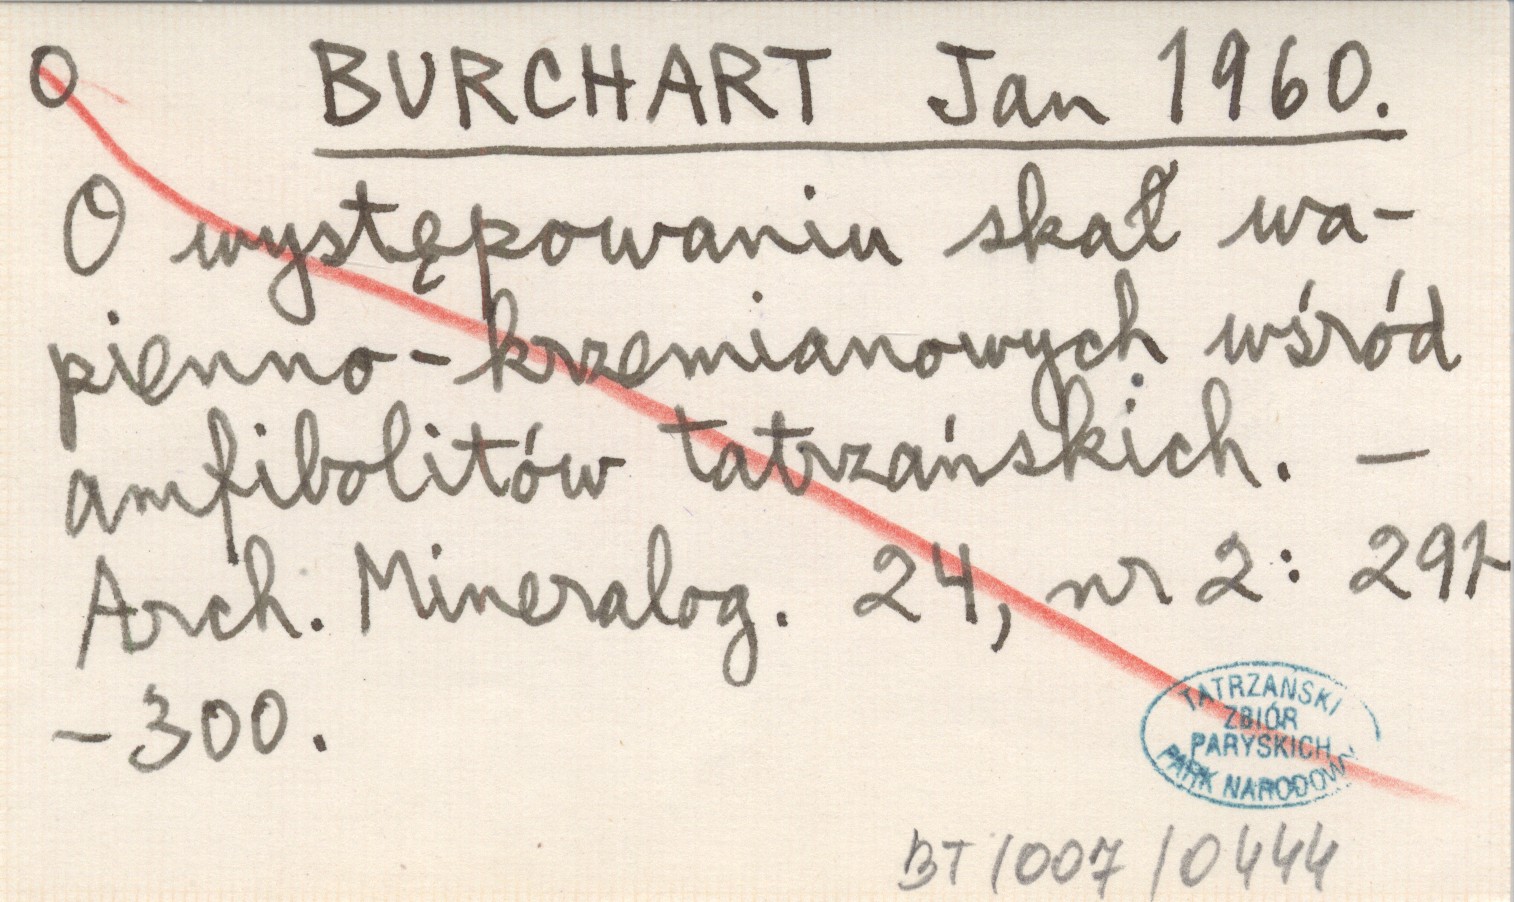 O BURCHART Jan 1960.
O występowaniu skał wa-
pienno-krzemianowych wśród
amfibolitów tatrzańskich. —
Arch. Mineralog. 24, nr 2: 291-
-300.
TATRZAŃSKI
ZBIÓR
PARYSKICH
PARK NARODOWY
BT/007/0444